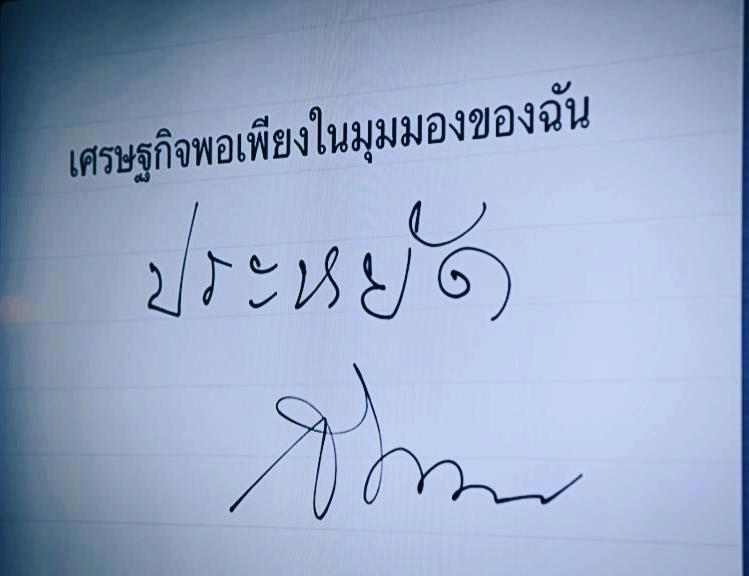 เศรษฐกิจพอเพียงในมุมมองของฉัน
ประหยัด